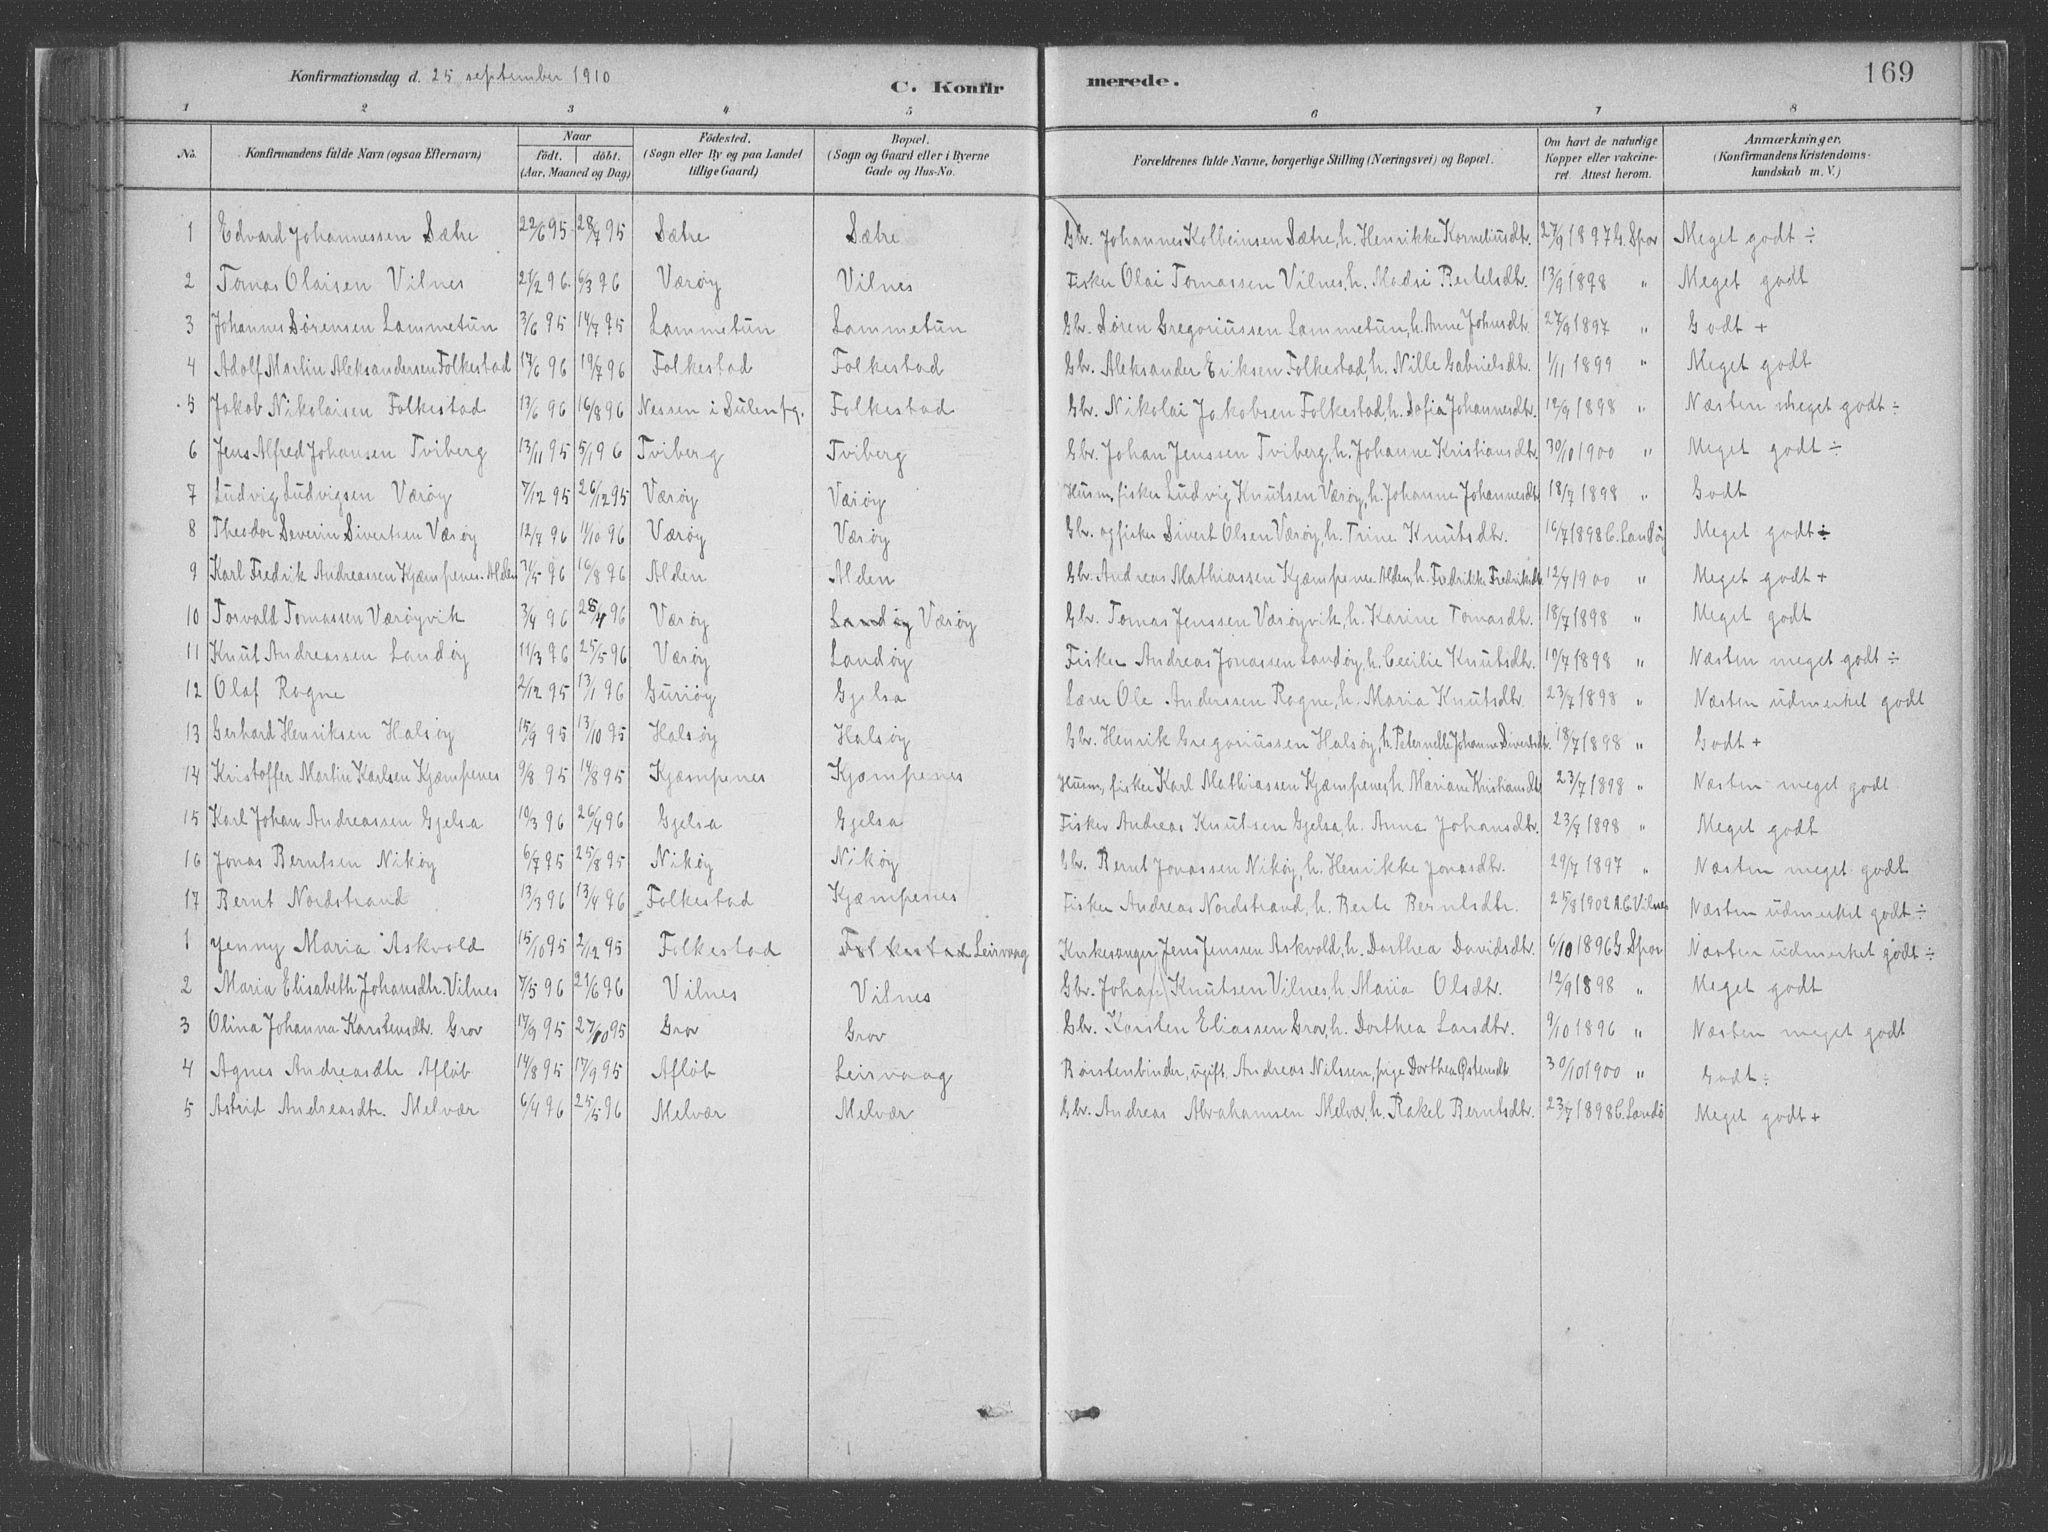 Konfirmationsdag d. 25 september 1910 C. Konfirmerede. 169
1 2 3 4 5 6 7 8
No. Konfirmandens fulde Navn (ogsaa Efternavn) Naar født. døbt. (Aar, Maaned og Dag) Fødested. (Sogn eller By og paa Landet tillige Gaard) Bopæl. (Sogn og Gaard eller i Byerne Gade og Hus-No. Forældrenes fulde Navne, borgerlige Stilling (Næringsvei) og Bopæl. Om havt de naturlige Kopper eller vakcineret. Attest herom. Anmærkninger, (Konfirmandens Kristendomskundskab m. V.)
1 Edvard Johannessen Sætre 22/6 95 28/7 95 Sætre Sætre Gbr. Johannes Kolbeinsen Sætre, h. Henrikke Korneliusdtr. 27/9 1897 G. Spor Meget godt ÷
2 Tomas Olaisen Vilnes 21/2 96. 6/3 96 Værøy Vilnes Fisker Olai Tomassen Vilnes, h. Madsi Bertelsdtr. 13/9 1898 " Meget godt
3 Johannes Sørensen Lammetun 3/6 95 14/7 95 Lammetun Lammetun Gbr. Søren Gregoriussen Lammetun, h. Anne Johnsdtr. 27/9 1897 " Godt +
4 Adolf Martin Aleksandersen Folkestad 17/6 96 19/7 96 Folkestad Folkestad Gbr. Aleksander Eriksen Folkestad, h. Nille Gabrielsdtr. 1/11 1899 " Meget godt
5 Jakob Nikolaisen Folkestad 13/6 96 16/8 96 Nessen i Sulen pg. Folkestad Gbr. Nikolai Jakobsen Folkestad, h. Sofia Johannesdtr. 12/9 1898 " Næsten meget godt ÷
6 Jens Alfred Johansen Tviberg 13/11 95 5/1 96 Tviberg Tviberg Gbr. Johan Jenssen Tviberg, h. Johanne Kristiansdtr. 30/10 1900 " Meget godt ÷
7 Ludvig Ludvigsen Værøy 7/12 95 26/12 95 Værøy Værøy Husm, fisker Ludvig Knutsen Værøy, h. Johanne Johannesdtr 18/7 1898 " Godt
8 Theodor Severin Sivertsen Værøy 12/7 96 11/10 96 Værøy Værøy Gbr. og fisker Sivert Olsen Værøy, h. Trine Knutsdtr. 16/7 1898 C. Landøy Meget godt ÷
9 Karl Fredrik Andreassen Kjæmpenes Alden 31/5 96 16/8 96 Alden Alden Gbr. Andreas Mathiassen Kjæmpenes Alden, h. Fredrikke Fredriksdtr. 12/7 1900 " Meget godt +
10 Torvald Tomassen Værøyvik 3/4 96 25/4 96 Værøy Landøy Værøy Gbr. Tomas Jenssen Værøyvik, h. Karine Tomasdtr. 18/7 1898 " Meget godt
11 Knut Andreassen Landøy 11/3 96 25/5 96 Værøy Landøy Fisker Andreas Jonassen Landøy, h. Cecilie Knutsdtr. 10/7 1898 " Næsten meget godt ÷
12 Olaf Rogne 2/12 95 13/1 96 Guriøy Gjelsa Lærer Ole Anderssen Rogne, h. Maria Knutsdtr. 23/7 1898 " Næsten udmerket godt
13 Gerhard Henriksen Halsøy 15/9 95 13/10 95 Halsøy Halsøy Gbr. Henrik Gregoriussen Halsøy, h. Peternelle Johanne Sivertsdtr. 18/7 1898 " Godt +
14 Kristoffer Martin Karlsen Kjæmpenes 9/8 95 14/8 95 Kjæmpenes Kjæmpenes Husm, fisker Karl Mathiassen Kjæmpenes, h. Mariane Kristiansdtr 23/7 1898 " Næsten meget godt
15 Karl Johan Andreassen Gjelsa 10/3 96 26/4 96 Gjelsa Gjelsa Fisker Andreas Knutsen Gjelsa, h. Anna Johansdtr. 23/7 1898 " Meget godt
16 Jonas Berntsen Nikøy 6/7 95 25/8 95 Nikøy Nikøy Gbr. Bernt Jonassen Nikøy, h. Henrikke Jonasdtr. 29/7 1897 " Næsten meget godt
17 Bernt Nordstrand 13/3 96 13/4 96 Folkestad Kjæmpenes Fisker Andreas Nordstrand, h. Berte Berntsdtr. 25/8 1902 A.C. Vilnes Næsten udmerket godt ÷
1 Jenny Maria Askvold 15/10 95 2/12 95 Folkestad Folkestad Leirvaag Kirkesanger Jens Jenssen Askvold, h. Dorthea Davidsdtr. 6/10 1896 G. Spor Næsten udmerket godt ÷
2 Maria Elisabeth Johansdtr. Vilnes 7/5 96 21/6 96 Vilnes Vilnes Gbr. Johan Knutsen Vilnes, h. Maria Olsdtr. 12/9 1898 " Meget godt
3 Olina Johanna Karstensdtr. Grov 17/9 95 27/10 95 Grov Grov Gbr. Karsten Eliassen Grov, h. Dorthea Larsdtr. 9/10 1896 " Næsten meget godt
4 Agnes Andreasdtr Afløb 14/8 95 17/9 95 Afløb Leirvaag Børstenbinder, ugift, Andreas Nilssen, pige Dorthea Østensdtr 30/10 1900 " Godt ÷
5 Astrid Andreasdtr. Melvær 6/4 96 25/5 96 Melvær Melvær Gbr. Andreas Abrahamsen Melvær, h. Rakel Berntsdtr. 23/7 1898 C. Landø Meget godt +